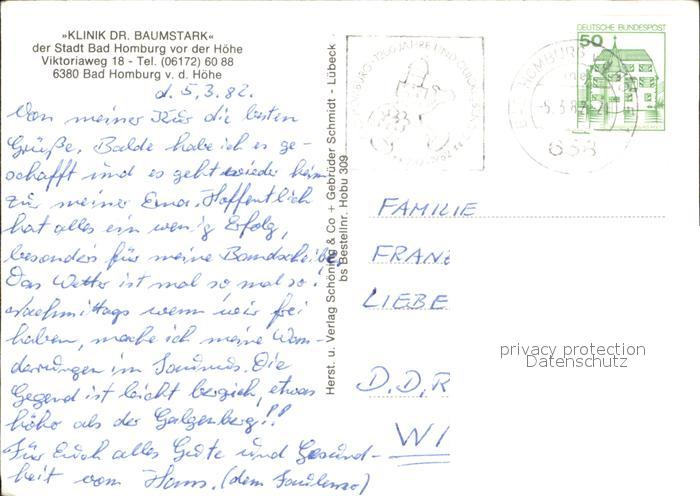 »KLINIK DR. BAUMSTARK«
der Stadt Bad Homburg vor der Höhe
Viktoriaweg 18 - Tel. (06172) 60 88
6380 Bad Homburg v. d. Höhe
d. 5.3.82.
Von meiner Kur die besten
Grüße. Balde habe ich es ge-
schafft und es geht wieder heim
zu meiner Erna. Hoffentlich
hat alles ein wenig Erfolg,
besonders für meine Bandscheibe.
Das Wetter ist mal so mal so!
Nachmittags wenn wir frei
haben, mache ich meine Wan-
derungen im Taunus. Die
Gegend ist leicht bergich, etwas
höher als der Galgenberg!!
Für Euch alles Gute und Gesund-
heit vom Hans. (dem
Herst. u. Verlag Schöning & Co + Gebrüder Schmidt - Lübeck
bs Bestellnr. Hobu 309
DEUTSCHE BUNDESPOST
50
FAMILIE
FRANZ
LIEBE
D.D.R
WI
privacy protection
Datenschutz